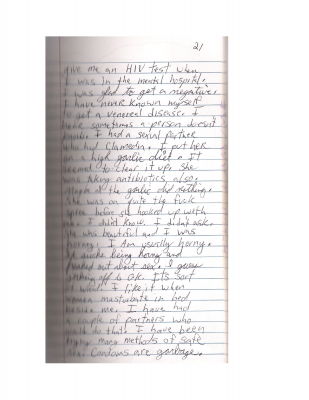 21
give me an HIV test when
I was in the mental hospital.
I was glad to get a negative.
I have never known myself
to get a venereal disease. I
sometimes a person doesn't
I had a sexual partner
who had Clamedia. I put her
on a high garlic diet. It
seemed to clear it up. She
was taking antibiotics also.
Maybe the garlic did nothing.
She was on quite the fuck
spree before she hooked up with
me. I didn't know. I didn't ask.
She was beautiful and I was
horny. I Am usually horny.
being horny and
out about sex. I guess
off is OK. Its sort
I like it when
women masturbate in bed
beside me. I have had
a couple of partners who
do that. I have been
many methods of safe
Condoms are garbage.